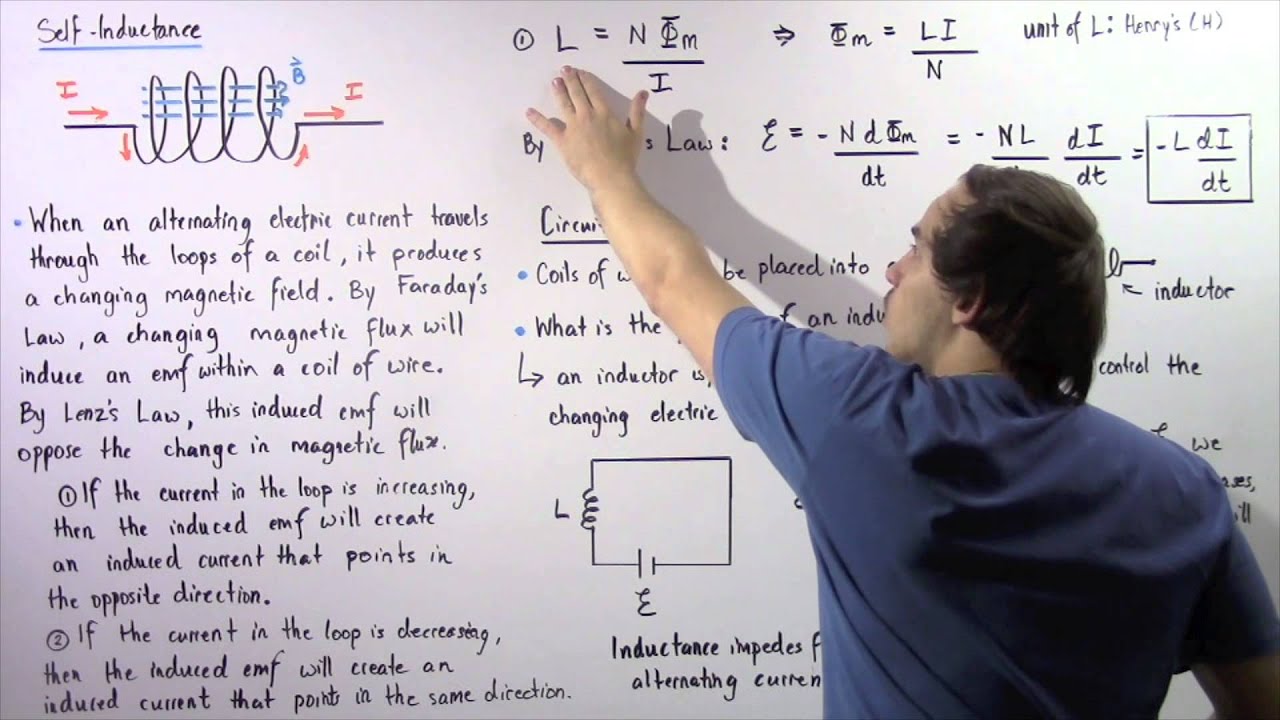 Self-Inductance
I
B
I
• When an alternating electric current travels
through the loops of a coil, it produces
a changing magnetic field. By Faraday's
Law, a changing magnetic flux will
induce an emf within a coil of wire.
By Lenz's Law, this induced emf will
oppose the change in magnetic flux.
① If the current in the loop is increasing,
then the induced emf will create
an induced current that points in
the opposite direction.
② If the current in the loop is decreasing,
then the induced emf will create an
induced current that points in the same direction.
① L = NΦm/I ⇒ Φm = LI/N
unit of L: Henry's (H)
By Law: ℰ = -N dΦm/dt = -NL dI/dt = -L dI/dt
• Coils of be placed into
inductor
• What is the of an
↳ an inductor is control the
changing electric
we
L
ℰ
Inductance impedes
alternating